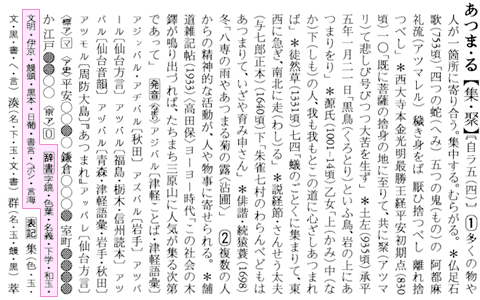 あつま・る【集・聚】〔自ラ五(四)〕①多くの物や
人が一箇所に寄り合う。集中する。むらがる。＊仏足石
歌(753頃)「四つの蛇(へみ)五つの鬼(もの)の阿都麻
礼流(アツマレル)穢き身をば厭ひ捨つべし離れ捨
つべし」＊西大寺本金光明最勝王経平安初期点(830
頃)一〇「既に菩薩の捨身の地に至りて、共に聚(アツマ
リ)て悲しび号びつつ大苦を生ず」＊土左(935頃)承平
五年一月二一日「黒鳥(くろとり)といふ鳥、岩の上にあ
つまりをり」＊源氏(1001‐14頃)乙女「上(かみ)中(な
か)下(しも)の人、我も我もとこの道に心ざしあつまれ
ば」＊徒然草(1331頃)七四「蟻のごとくに集まりて、東
西に急ぎ、南北に走(わし)る」＊説経節・さんせう太夫
(与七郎正本)(1640頃)下「朱雀七村のわらんべどもは
あつまりて、いざや育み申さん」＊俳諧・続猿蓑(1698)
冬「八専の雨やあつまる菊の露〈沾圃〉」②複数の人
からの精神的な活動が、人や物事に寄せられる。＊舗
道雑記帖(1933)〈高田保〉ヨーヨー時代「この社会の木
鐸が鳴り出づれば、たちまち三原山に人気が集る次第
であって」発音〈なまり〉アジバル〔津軽ことば・津軽語彙〕
アジッバル・アヂバル〔秋田〕アツバル〔岩手〕アツマ
バル〔仙台方言〕アツバル〔福島・栃木・信州読本〕アツ
バル〔仙台音韻〕アヅバル〔青森・津軽語彙・岩手・秋田〕
アツモル〔周防大島〕『あつまれ』アッバレ〔仙台方言〕
〈標ア〉マ〈ア史〉平安〇〇〇●鎌倉〇〇〇●室町●●●
か江戸●●〇〇〈京ア〉0 辞書字鏡・色葉・名義・下学・和玉・
文明・伊京・饅頭・黒本・日葡・書言・ヘボン・言海 表記集(色・玉・
文・黒・書・ヘ・言)湊(名・下・玉・文・書)群(名・玉・饅・黒)萃